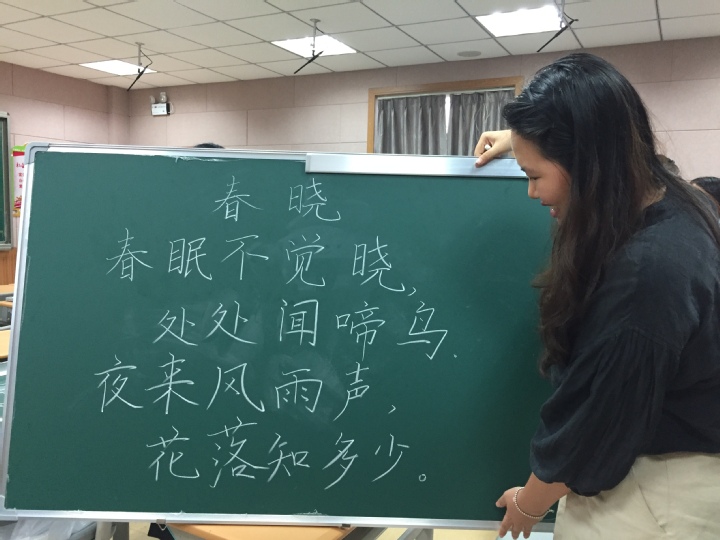 春晓
春眠不觉晓,
处处闻啼鸟.
夜来风雨声,
花落知多少。